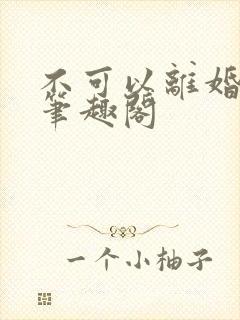 不可以離婚
筆趣閣
一个小柚子